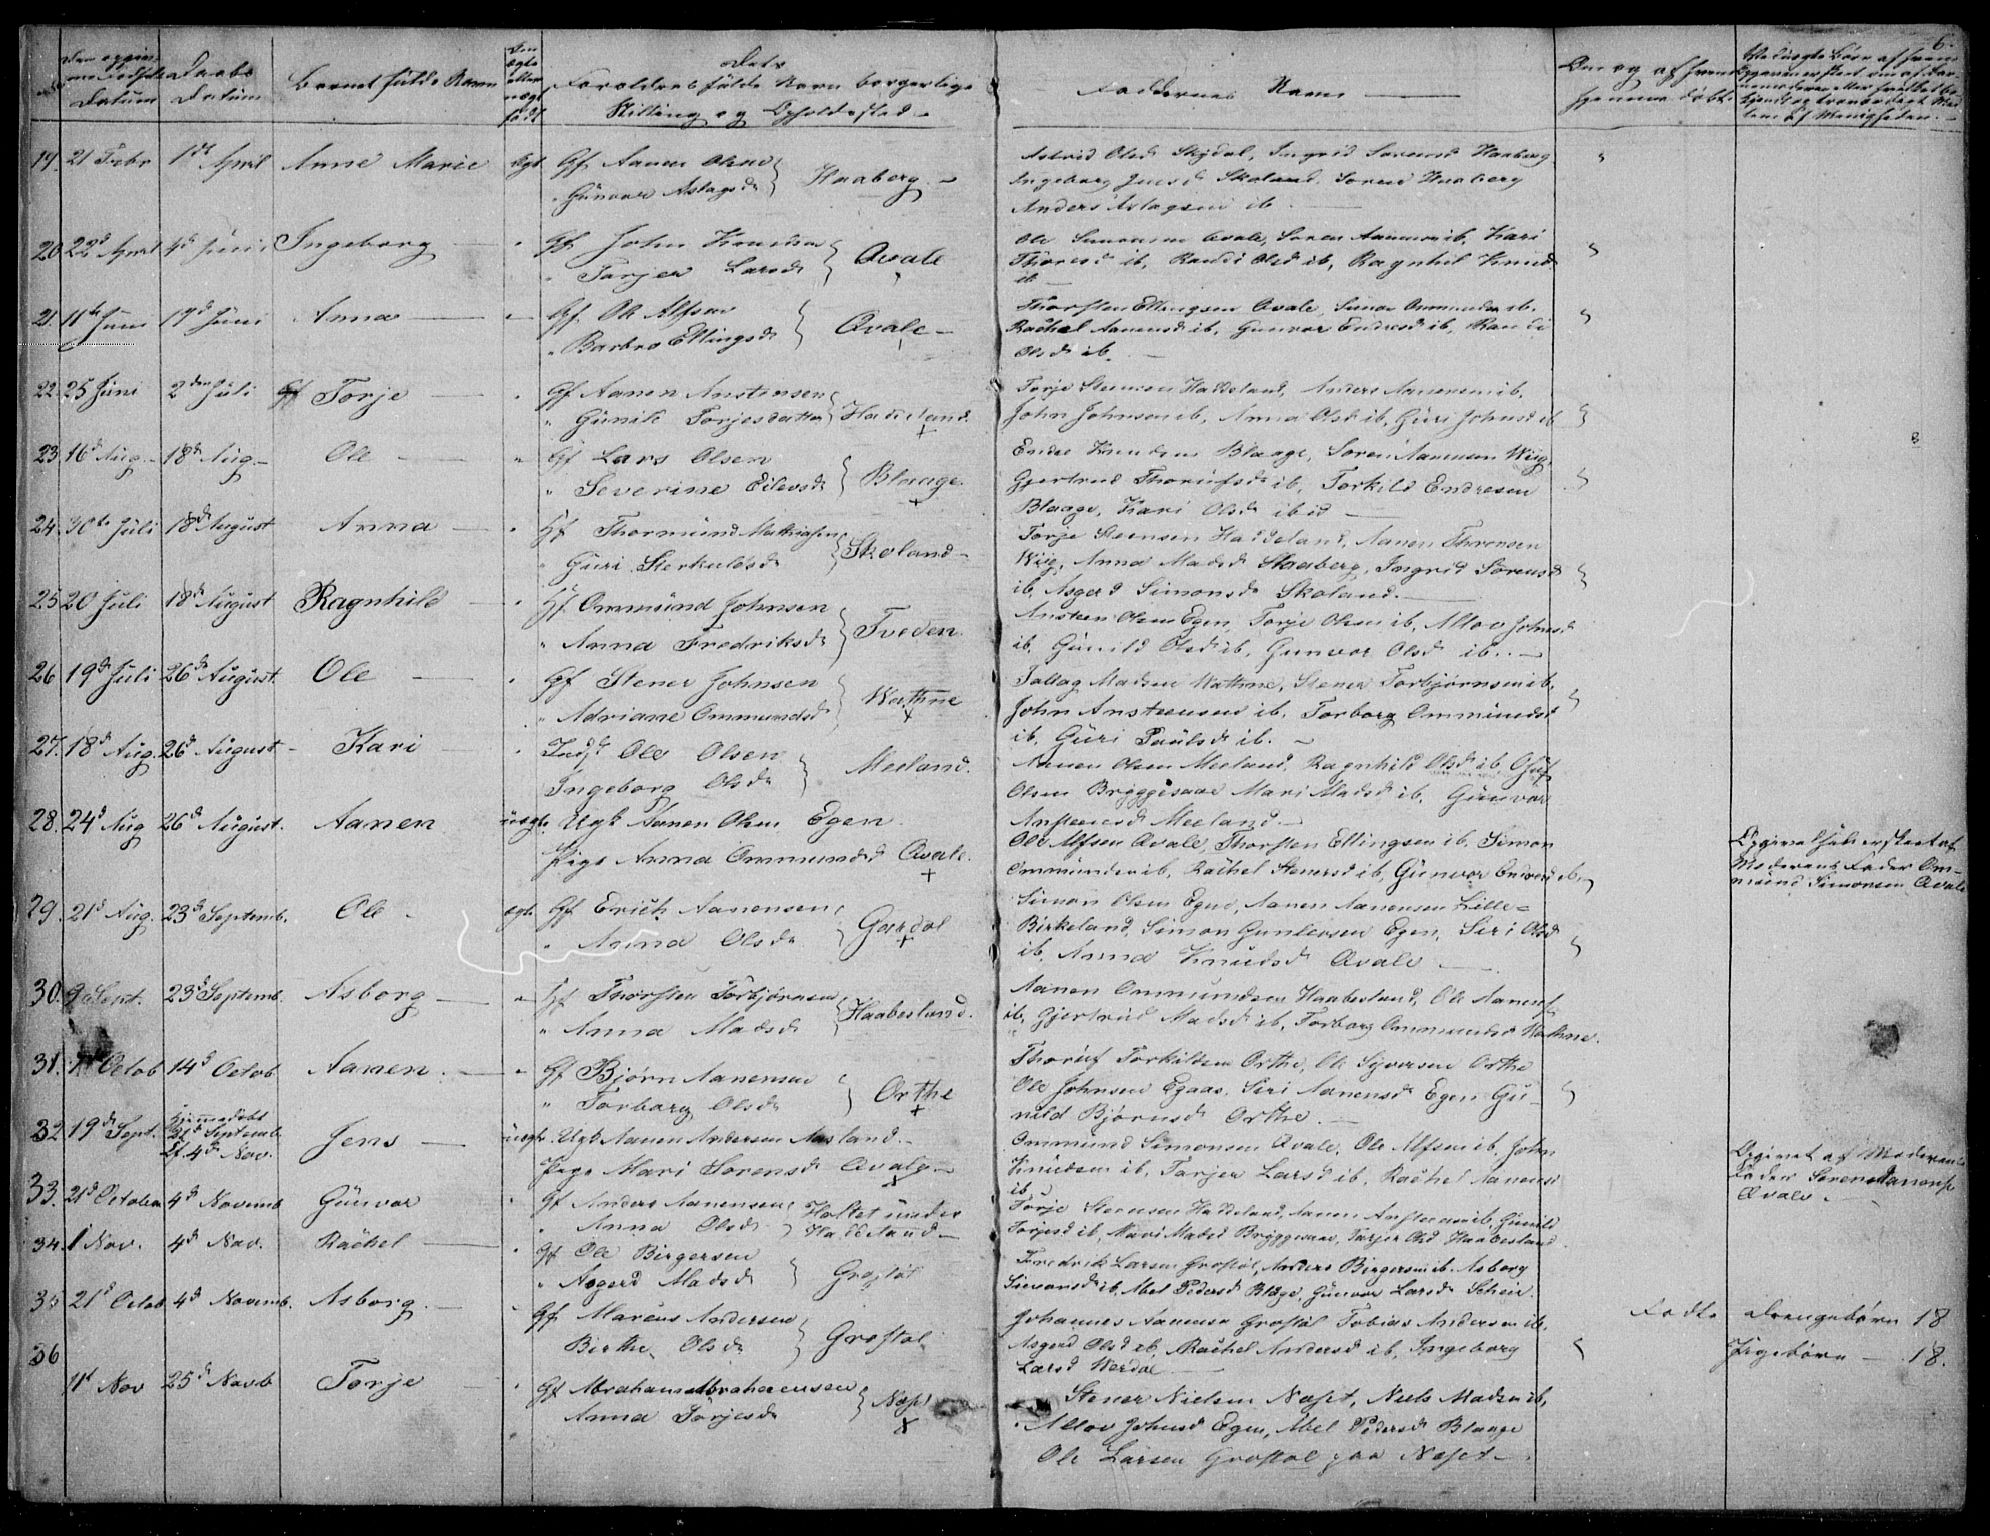 6.
Daabs
Datum
Barnets fulde Navn
Forældrenes fulde Navn borgerlige
Stilling og Opholdssted
Faddernes Navne
19. 21 Febr 1ste April Anne Marie Ægt Gf Aanen Olsen
Gunvor Aslagsd Haaberg
Astrid Olsd Skjdal, Ingrid Sorensd Haaberg
Ingeborg Jensd Skoland, Soren Haaberg
Anders Aslagsen ib
20 22d April 4d Juni Ingeborg Gf John Knudsen
Tarjer Larsd Qvale
Ole Simonsen Qvale, Soren Aanensen ib, Kari
Thoresd ib, Randi Olsd ib, Ragnhil Knudsd
ib
21. 11te Juni 17d Juni Anna Gf Ole Alfsen
Barbro Ellingsd Qvale
Thorsten Ellingsen Qvale, Simon Ommundsen ib,
Rachel Aanensd ib, Gunvor Endresd ib, Randi
Olsd ib.
22. 25 Juni 2den Juli Torje Gf Aanen Anstensen
Gunild Torjesdatter Haddeland
Torje Steensen Haddeland, Anders Aanensen ib,
John Johnsen ib, Anna Olsd ib, Guri Johnsd ib
23. 16d Aug. 18d Aug. Ole Gf Lars Olsen
Severine Eilevsd Blaage
Endre Knudsen Blaage, Soren Aanensen Wiig,
Gjertrud Thorufsd ib, Torkild Endresen
Blaage, Kari Olsd ibid
24. 30te Juli 18d August Anna Hf Thormund Mathiasen
Guri Sterkulfsd Skoland
Torje Steensen Haddeland, Aanen Thorensen
Wiig, Anna Madsd Haaberg, Ingrid Sorensd
ib, Asgerd Simonsd Skoland.
25 20 Juli 18d August Ragnhild Hf Ommund Johnsen
Anna Fredriksd Tveden
Ansteen Olsen Egen, Torje Olsen ib, Allov Johnsd
ib, Gunild Olsd ib, Gunvor Olsd ib.
26 19d Juli 26d August. Ole Gf Stener Johnsen
Adriane Ommundsd Wathne
Tallag Madsen Wathne, Stener Torbjørnsen ib,
John Ansteensen ib, Torborg Ommundsd
ib, Guri Paulsd ib.
27. 18d Aug. 26d August Kari Inds Ole Olsen
Ingeborg Olsd Meeland.
Aanen Olsen Meeland, Ragnhild Olsd ib, Oluf
Olsen Bryggesaae Mari Madsd ib, Gunvor
Ansteensd Meeland.
28. 24d Aug 26d August. Aanen uægte Ugk Aanen Olsen Egen
Pige Anna Ommundsd Qvale.
Ole Alfsen Qvale, Thorsten Ellingsen ib, Simon
Ommundsen ib, Rachel Stenersd ib, Gunvor Endresd ib,
Opgivelsen er skeet af
Moderens Fader Om-
mund Simonsen Qvale
29. 21d Aug. 23d Septemb. Ole ægte Gf Erich Aanensen
Anna Olsd Gardal
Simon Olsen Egen, Aanen Aanensen Lille-
Birkeland, Simon Gunleivsen Egen, Siri Olsd
ib, Anna Knudsd Qvale
30. 9 Sept. 23d Septemb. Asborg Hf Thorsten Torbjørnsen
Anna Madsd Haabesland.
Aanen Ommundsen Haabesland, Ole Aanensen
ib, Gjertrud Madsd ib, Torborg Ommundsd Wathne.
31. 1 Octob 14d Octob Aanen. Gf Bjørn Aanensen
Torborg Olsd Orthe
Thoruf Torkildsen Orthe, Ole Syversen Orthe
Ole Johnsen Egaas, Siri Aanensd Egen Gu-
nild Bjørnsd Orthe.
32 19d Sept. Hjemmedøbt
21d Septemb
Ef. 4d Nov. Jens uægte. Ugk Aanen Andersen Aasland.
Pige Mari Sorensd Qvale
Ommund Simonsen Qvale, Ole Alfsen ib, John
Knudsen ib, Tarjer Larsd ib, Rachel Aanensd
ib
Opgivet af Moderens
Fader Soren Aanensen
Qvale.
33. 21d October 4d Novemb Gunvor Gf Anders Aanensen
Anna Olsd Holtet under
Haddeland
Torje Steensen Haddeland, Aanen Ansteensen ib, Gunild
Torjesd ib, Mari Madsd Bryggesaae, Tarjer Olsd Haabesland
34. 1 Nov. 4d Nov. Rachel Gf Ole Birgersen
Asgerd Madsd Grostøl
Fredrik Larsen Grostøl, Anders Birgersen ib, Asborg
Simonsd ib, Abel Pedersd Blage, Gunvor Larsd Scheie.
35 21d Octob 4d Novemb. Asborg. Gf Marcus Andersen
Birthe Olsd Grostøl
Johannes Aanensen Grostøl Tobias Andersen ib,
Asgerd Olsd ib, Rachel Andersd ib, Ingeborg
Larsd Werdal
Fødte Drengebørn 18
Pigebørn 18.
36
11d Nov 25d Novb Torje Gf Abraham Abrahamsen
Anna Torjesd Næset
Stener Nielsen Næset, Niels Madsen ib,
Allov Johnsd Egen, Abel Pedersd Blaage
Ole Larsen Grostøl paa Næset